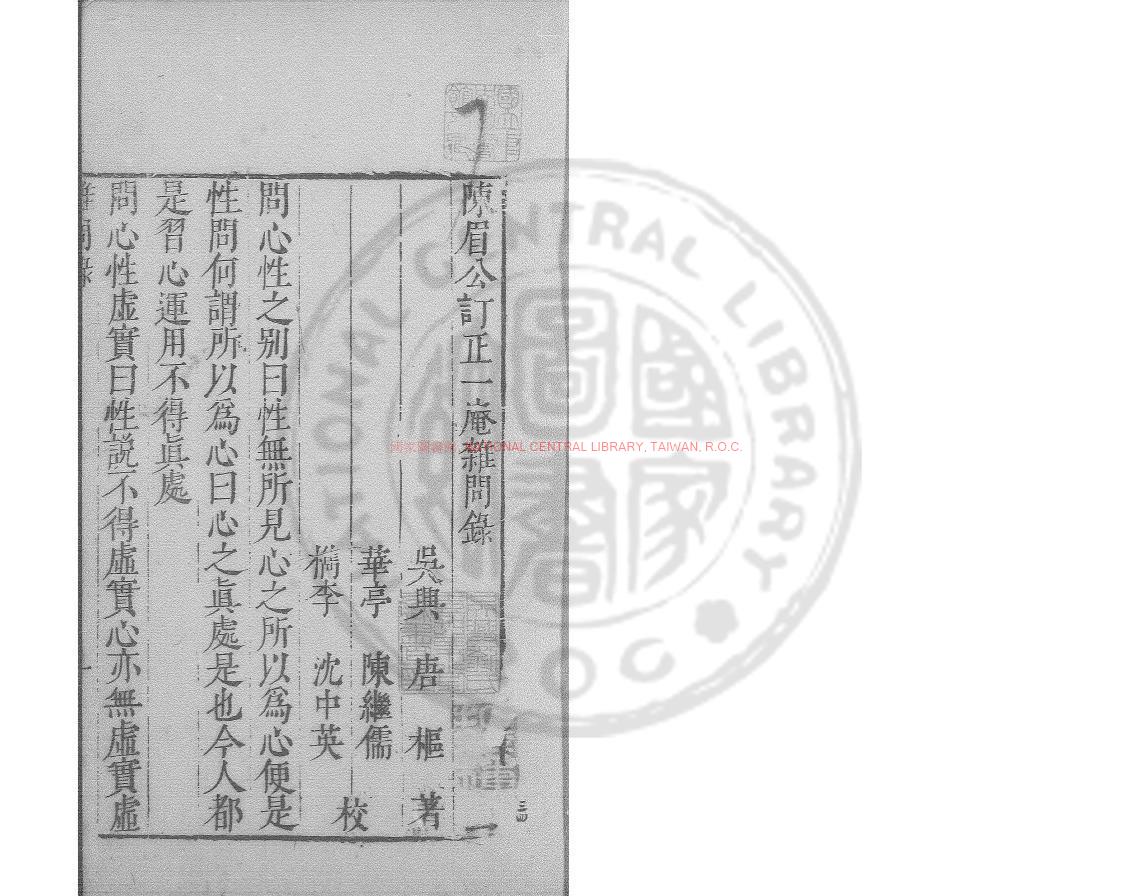 陳眉公訂正一庵雜問錄
吳興 唐樞 著
華亭 陳繼儒
檇李 沈中英 校
問心性之别曰性無所見心之所以爲心便是
性問何謂所以爲心曰心之眞處是也今人都
是習心運用不得眞處
問心性虛實曰性説不得虛實心亦無虛實虛
NATIONAL CENTRAL LIBRARY
R.O.C.
國家圖書館
NATIONAL CENTRAL LIBRARY, TAIWAN, R.O.C.